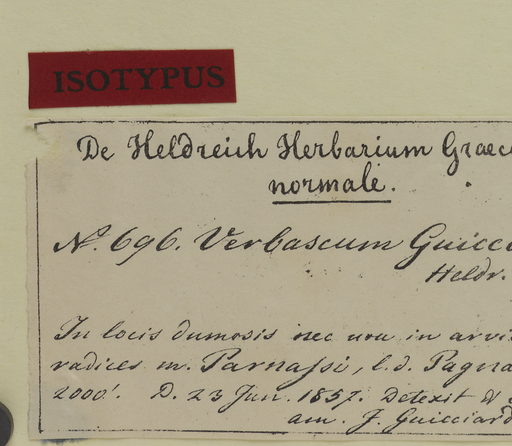 ISOTYPUS
De Heldreich Herbarium Graec
normale.
No. 696. Verbascum Guicci
Heldr.
In locis dumosis nec non in arvi
radices m. Parnassi, l. d. Pagna
2000'. D. 23 Jun. 1857. Detexit &
am. J. Guicciard